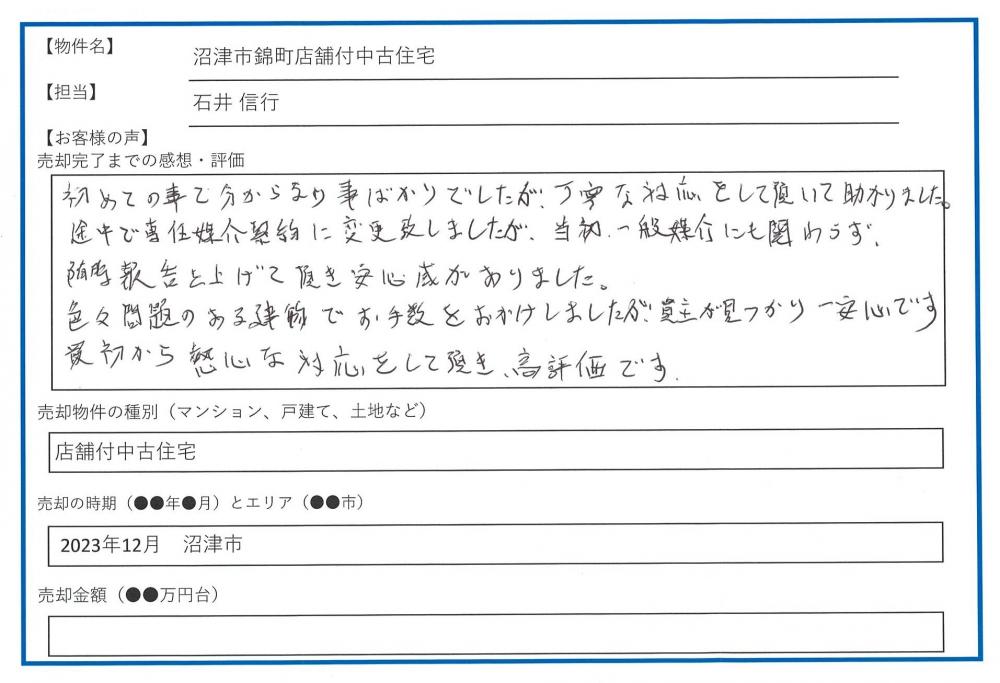 【物件名】
沼津市錦町店舗付中古住宅
【担当】
石井 信行
【お客様の声】
売却完了までの感想・評価
初めての事で分からない事ばかりでしたが、丁寧な対応をして頂いて助かりました。
途中で専任媒介契約に変更致しましたが、当初、一般媒介にも関わらず、
随時報告を上げて頂き安心感がありました。
色々問題のある建物でお手数をおかけしましたが、買主が見つかり一安心です
最初から熱心な対応をして頂き、高評価です.
売却物件の種別（マンション、戸建て、土地など）
店舗付中古住宅
売却の時期（●●年●月）とエリア（●●市）
2023年12月　沼津市
売却金額（●●万円台）